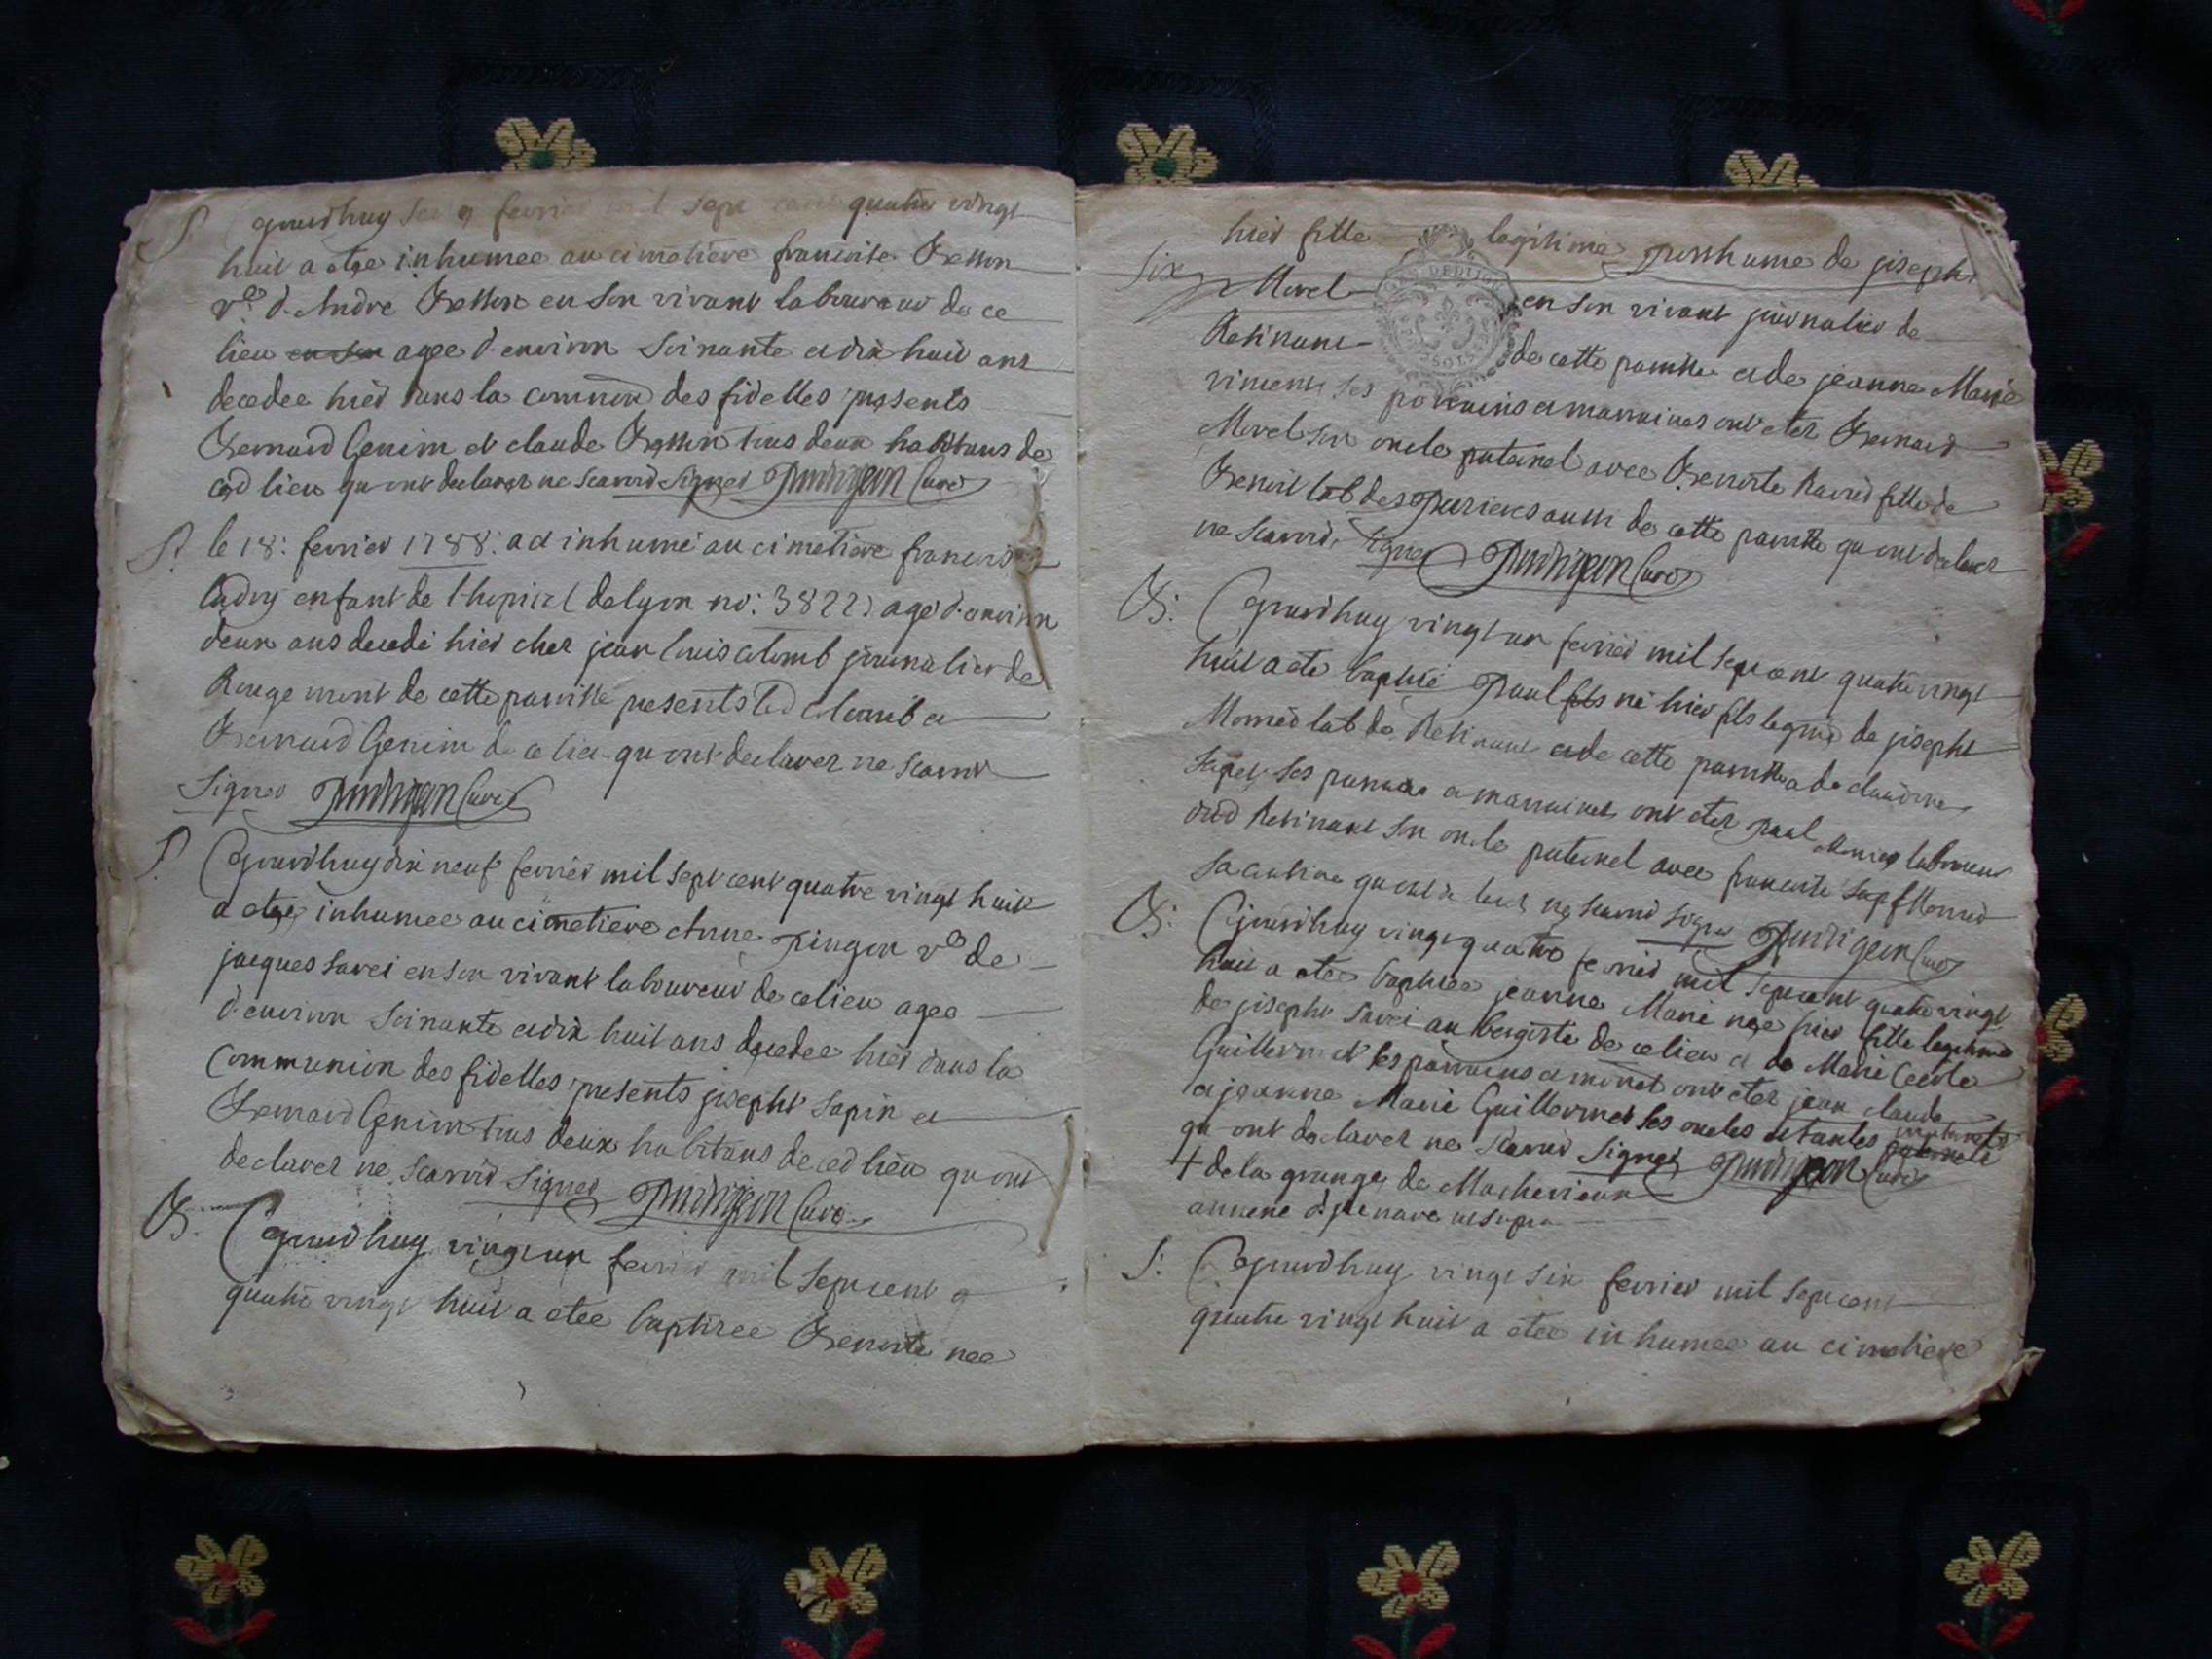 S. Cejourdhuy fevrier mil sept cent quatre vingt
huit a etee inhumee au cimetiere francoise Besson
ve d. Andre Besson en son vivant laboureur de ce
lieu en son agee d. environ soixante et dix huit ans
decedee hier dans la communion des fidelles presents
Bernard Genim et claude Besson tous deux habitans de
ced lieu qu ont declarer ne scavoir signer Curé
S. le 18: fevrier 1788: a et inhumé au cimetiere francois
enfant de l hopital de lyon no: 3822 agé d. environ
deux ans decedé hier chez jean louis colomb journalier de
Rougemont de cette paroisse presents led colomb et
Bernard Genim de ce lieu qu ont declarer ne scavoir
signer Curé
S. Cejourdhuy dix neuf fevrier mil sept cent quatre vingt huit
a etee inhumee au cimetiere Anne Pingon ve de
jacques Savei en son vivant laboureur de ce lieu agee
d. environ soixante et dix huit ans decedee hier dans la
communion des fidelles presents joseph Sapin et
Bernard Genim tous deux habitans de ced lieu qu ont
declarer ne scavoir signer Curé
B. Cejourdhuy vingt un fevrier mil sept cent
quatre vingt huit a etee baptisee Benoite nee
hier fille legitime posthume de joseph
six Morel en son vivant journalier de
Retinant de cette paroisse et de jeanne Marie
vincent ses parrains et marraines ont eter Bernard
Morel son oncle paternel avec Benoite fille de
Benoit lab des aussi de cette paroisse qu ont declarer
ne scavoir signer Curé
B: Cejourdhuy vingt un fevrier mil sept cent quatre vingt
huit a ete baptisé Paul fils né hier fils legitime de joseph
Morned lab de Retinant et de cette paroisse et de claudine
Sapet ses parrains et marraines ont eter paul laboureur
dud Retinant son oncle paternel avec francoise
sa cousine qu ont declarer ne scavoir signer Curé
B: Cejourdhuy vingt quatre fevrier mil sept cent quatre vingt
huit a etee baptisee jeanne Marie nee hier fille legitime
de joseph Savei aubergiste de ce lieu et de Marie Cecile
Guillermet ses parrains et ont eter jean claude
et jeanne Marie Guillermet ses oncles et tantes maternels
qu ont declarer ne scavoir signer Curé
+ de la grange de
S: Cejourdhuy vingt six fevrier mil sept cent
quatre vingt huit a etee inhumee au cimetiere